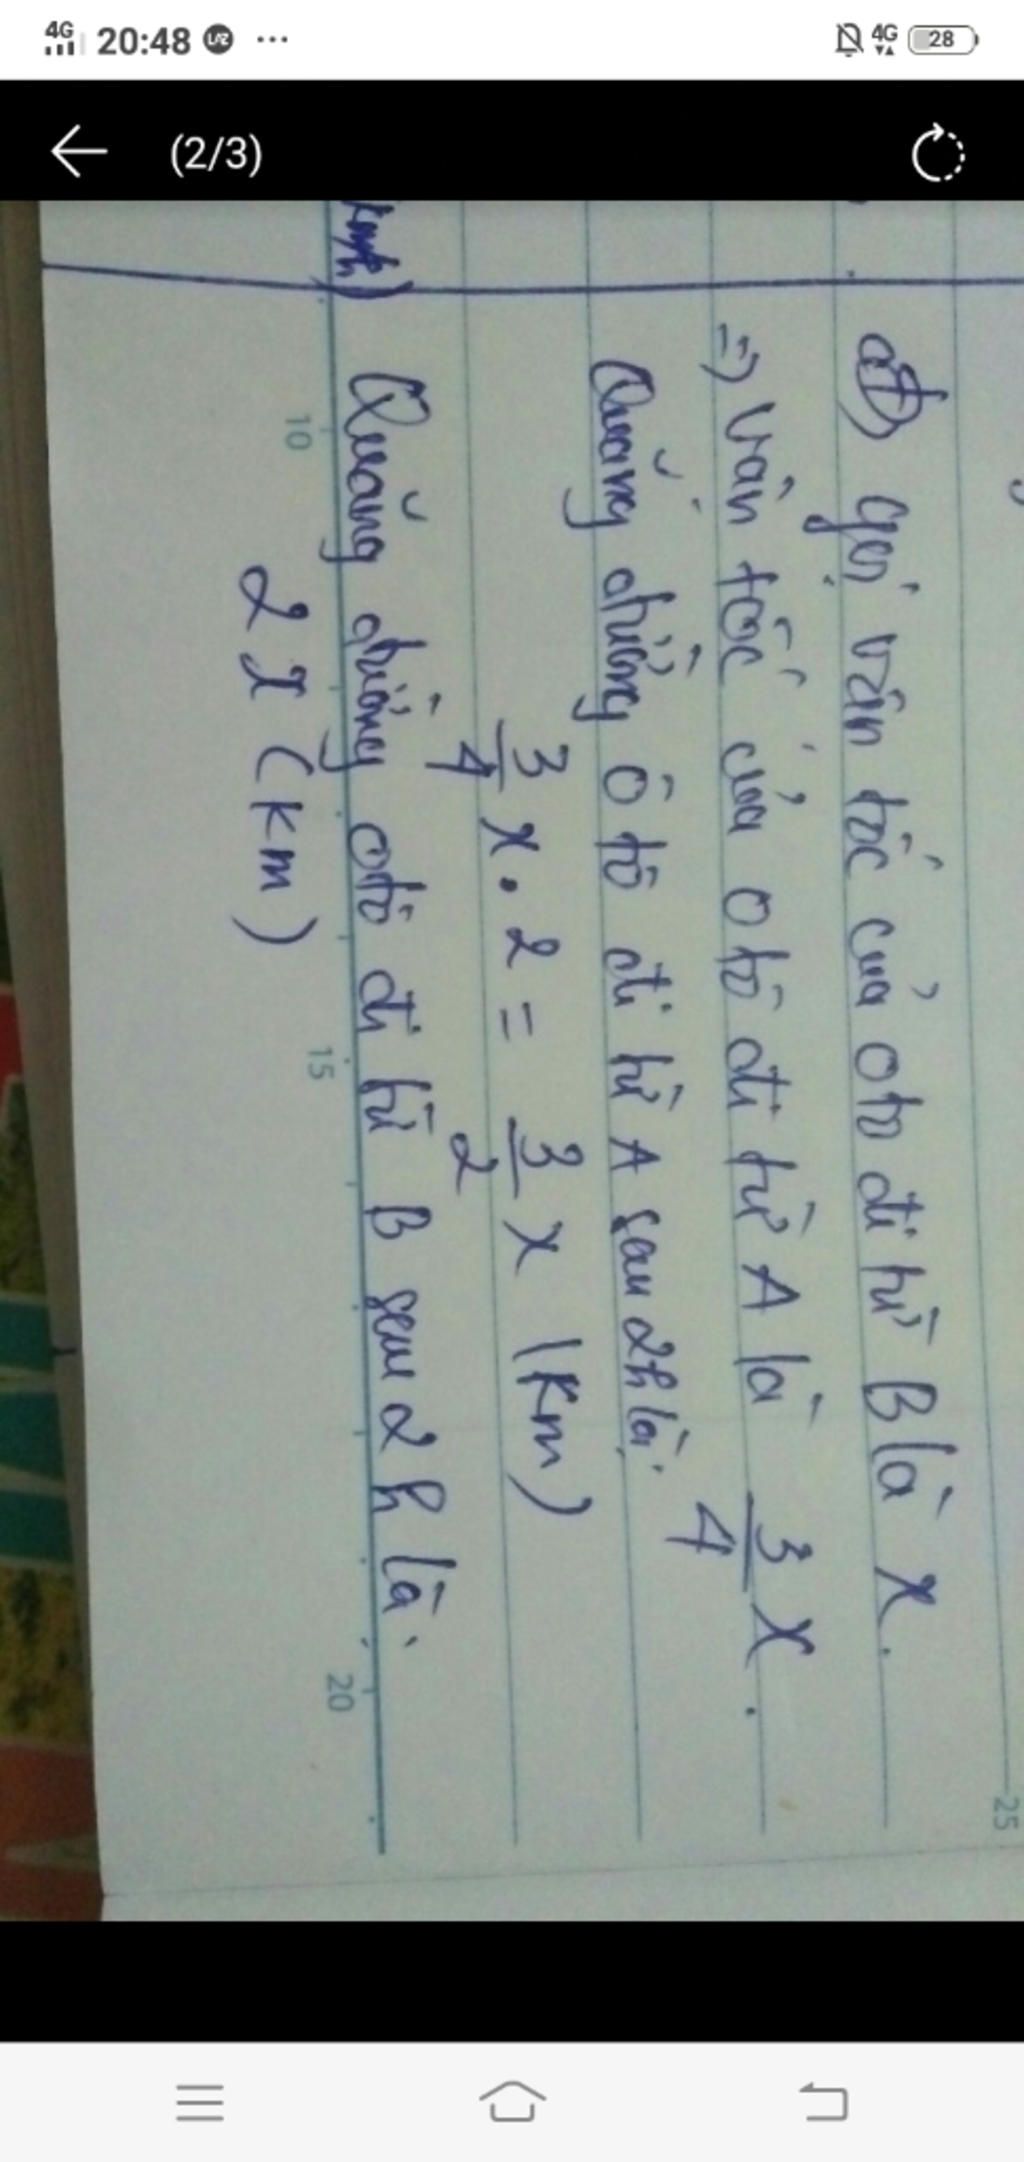 4G 20:48 ... 4G 28
(2/3)
25
gọi vận tốc của oto đi từ B là x.
=> Vận tốc của o tô đi từ A là 3/4 x.
Quãng đường ô tô đi từ A sau 2h là:
3/4 x . 2 = 3/2 x (km)
km/h) Quãng đường ôtô đi từ B sau 2h là:
10 15 20
2x (km)